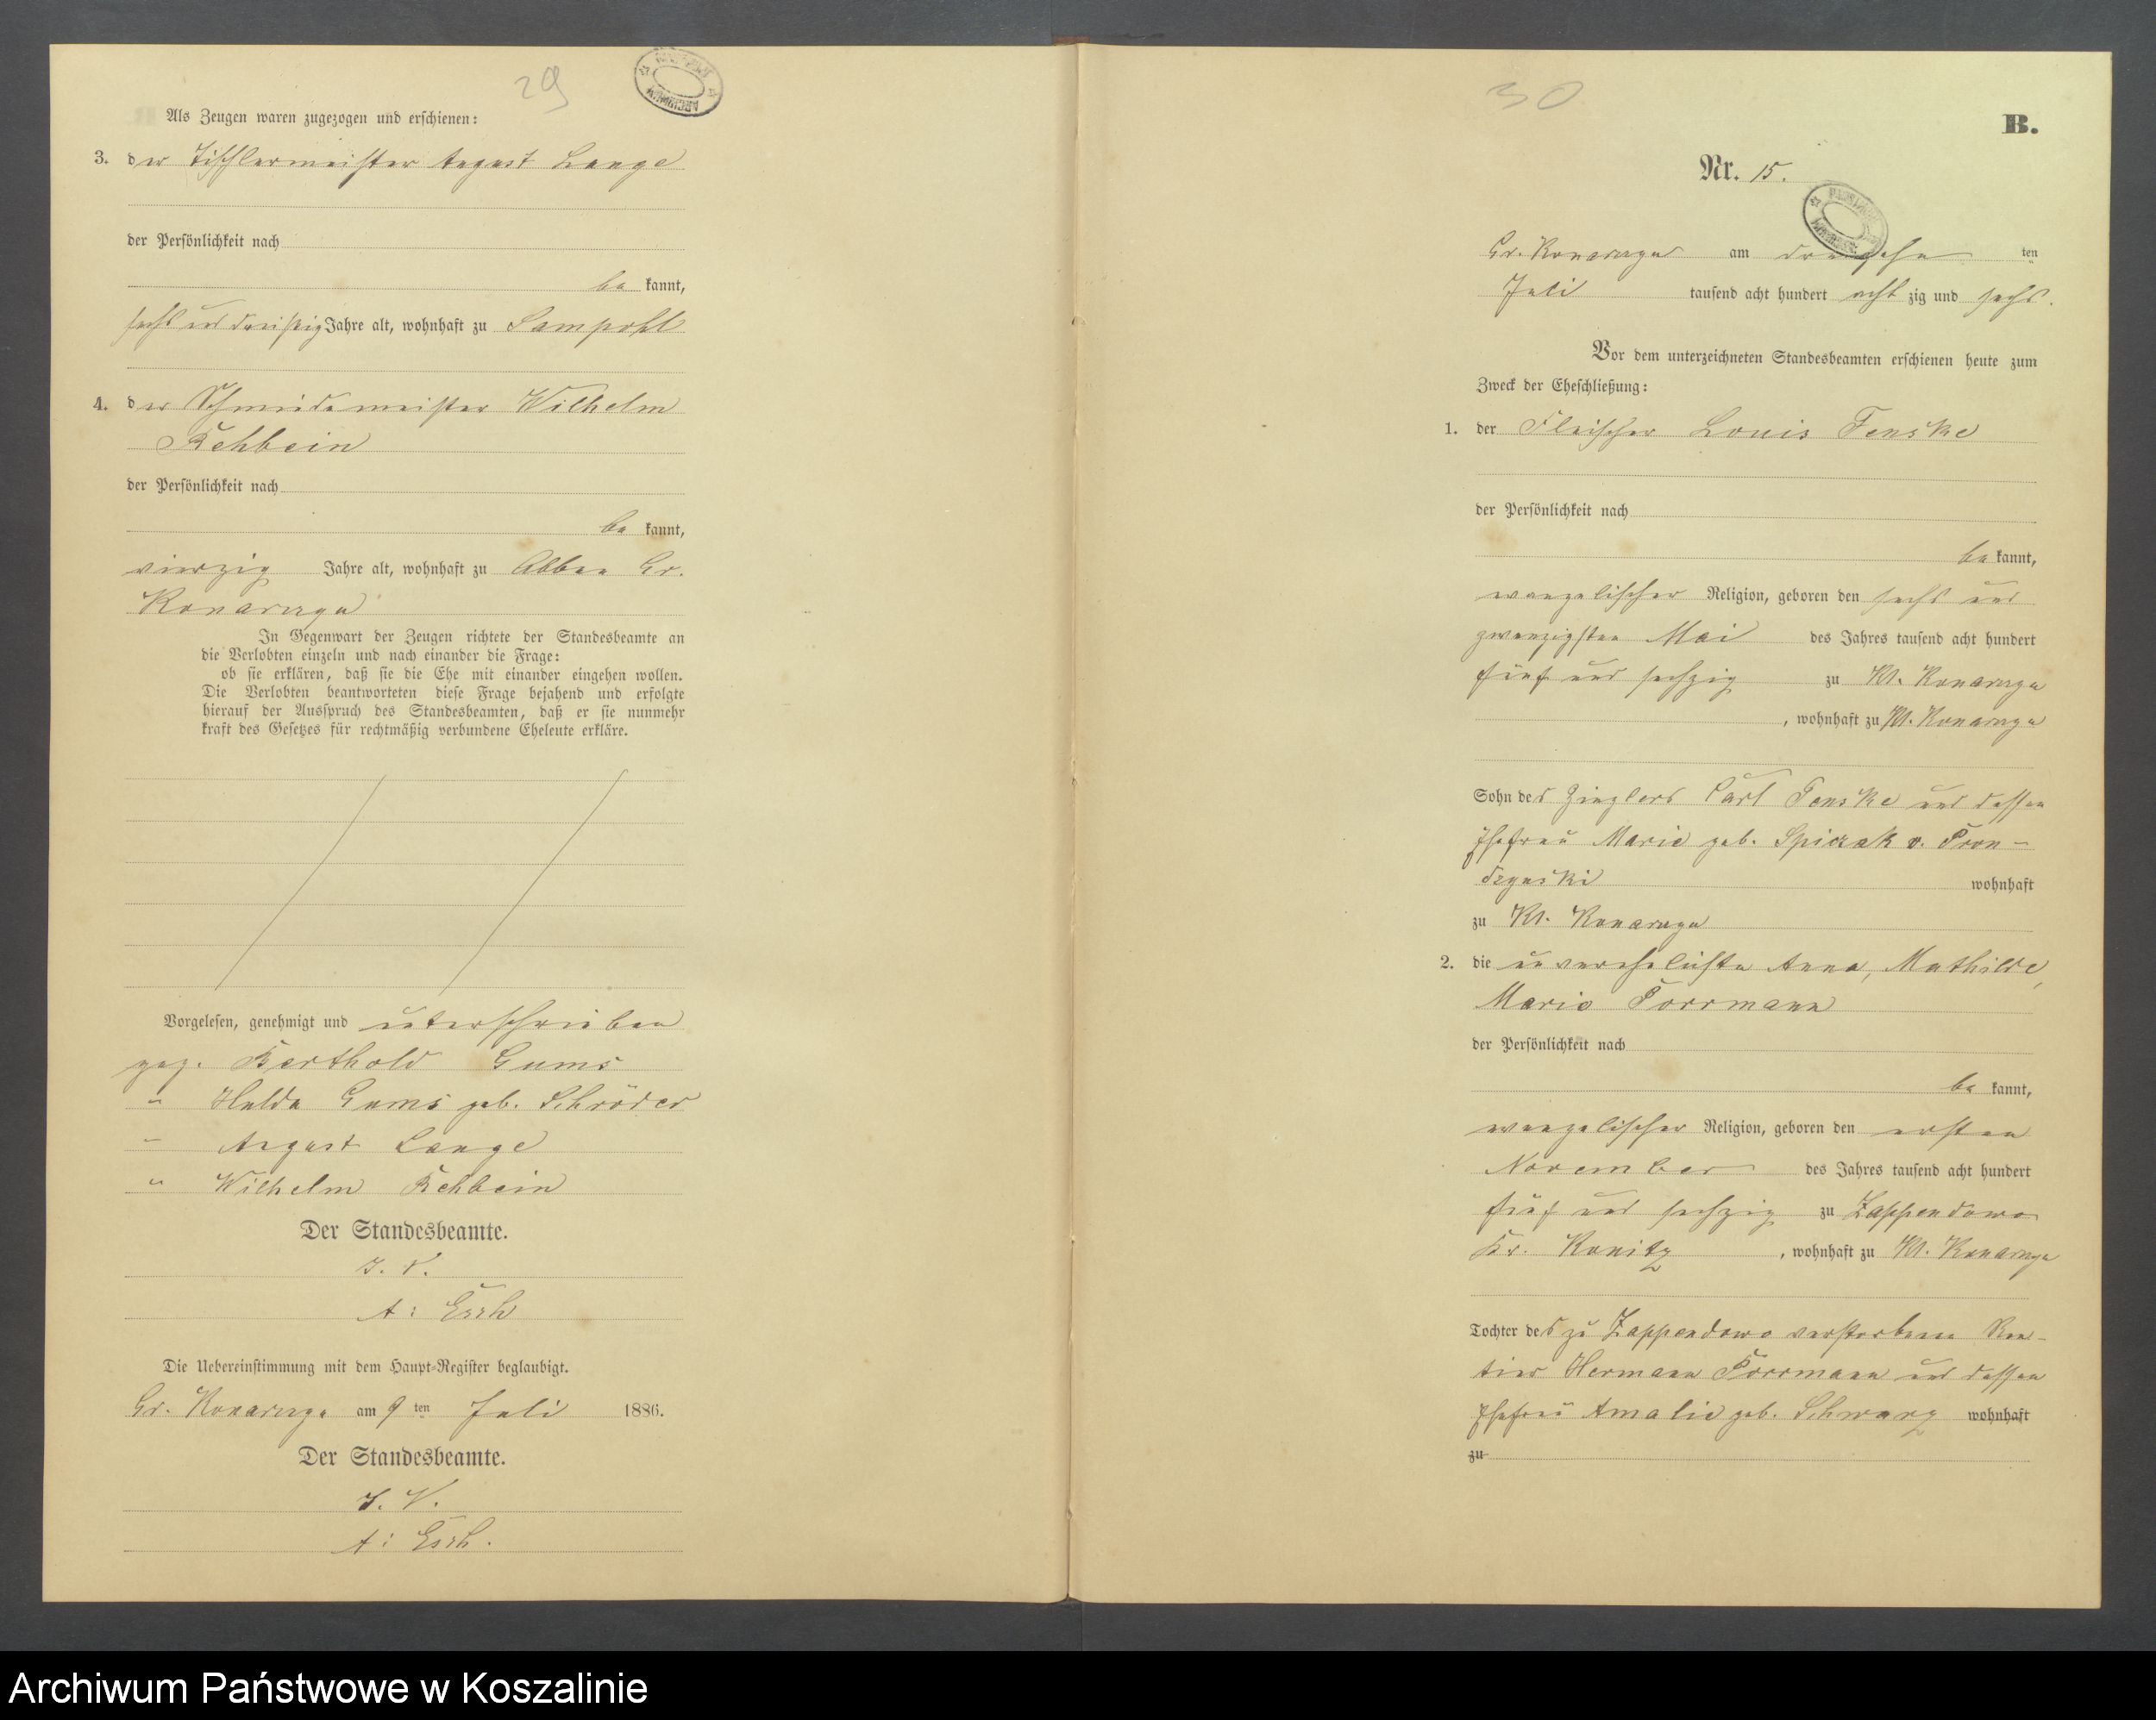 29
Als Zeugen waren zugezogen und erschienen:
3. der Tischlermeister August Lange
der Persönlichkeit nach
be kannt,
sechs und dreißig Jahre alt, wohnhaft zu Sampohl
4. der Schmiedemeister Wilhelm
Rehbein
der Persönlichkeit nach
be kannt,
vierzig Jahre alt, wohnhaft zu Abbau Gr.
Konarczyn
In Gegenwart der Zeugen richtete der Standesbeamte an
die Verlobten einzeln und nach einander die Frage:
ob sie erklären, daß sie die Ehe mit einander eingehen wollen.
Die Verlobten beantworteten diese Frage bejahend und erfolgte
hierauf der Ausspruch des Standesbeamten, daß er sie nunmehr
kraft des Gesetzes für rechtmäßig verbundene Eheleute erkläre.
Vorgelesen, genehmigt und unterschrieben
gez. Berthold Gums
" Hulda Gums geb. Schröder
" August Lange
" Wilhelm Rehbein
Der Standesbeamte.
J. V.
A: Esch
Die Uebereinstimmung mit dem Haupt-Register beglaubigt.
Gr. Konarczyn am 9 ten Juli 1886.
Der Standesbeamte.
J. V.
A: Esch.
30
B.
Nr. 15.
Gr. Konarczyn am dreizehn ten
Juli tausend acht hundert acht zig und sechs.
Vor dem unterzeichneten Standesbeamten erschienen heute zum
Zweck der Eheschließung:
1. der Fleischer Louis Fenske
der Persönlichkeit nach
be kannt,
evangelischer Religion, geboren den sechs und
zwanzigsten Mai des Jahres tausend acht hundert
fünf und sechzig zu Kl. Konarczyn
, wohnhaft zu Kl. Konarczyn
Sohn des Zieglers Carl Fenske und dessen
Ehefrau Marie geb. Spiczak v. Pron-
dzynski wohnhaft
zu Kl. Konarczyn
2. die unverehelichte Anna, Mathilde,
Marie Porrmann
der Persönlichkeit nach
be kannt,
evangelischer Religion, geboren den ersten
November des Jahres tausend acht hundert
fünf und sechzig zu Zappendowo
Kr. Konitz , wohnhaft zu Kl. Konarczyn
Tochter des zu Zappendowo verstorbenen Ren-
tier Hermann Porrmann und dessen
Ehefrau Amalie geb. Schwarz wohnhaft
zu
Archiwum Państwowe w Koszalinie